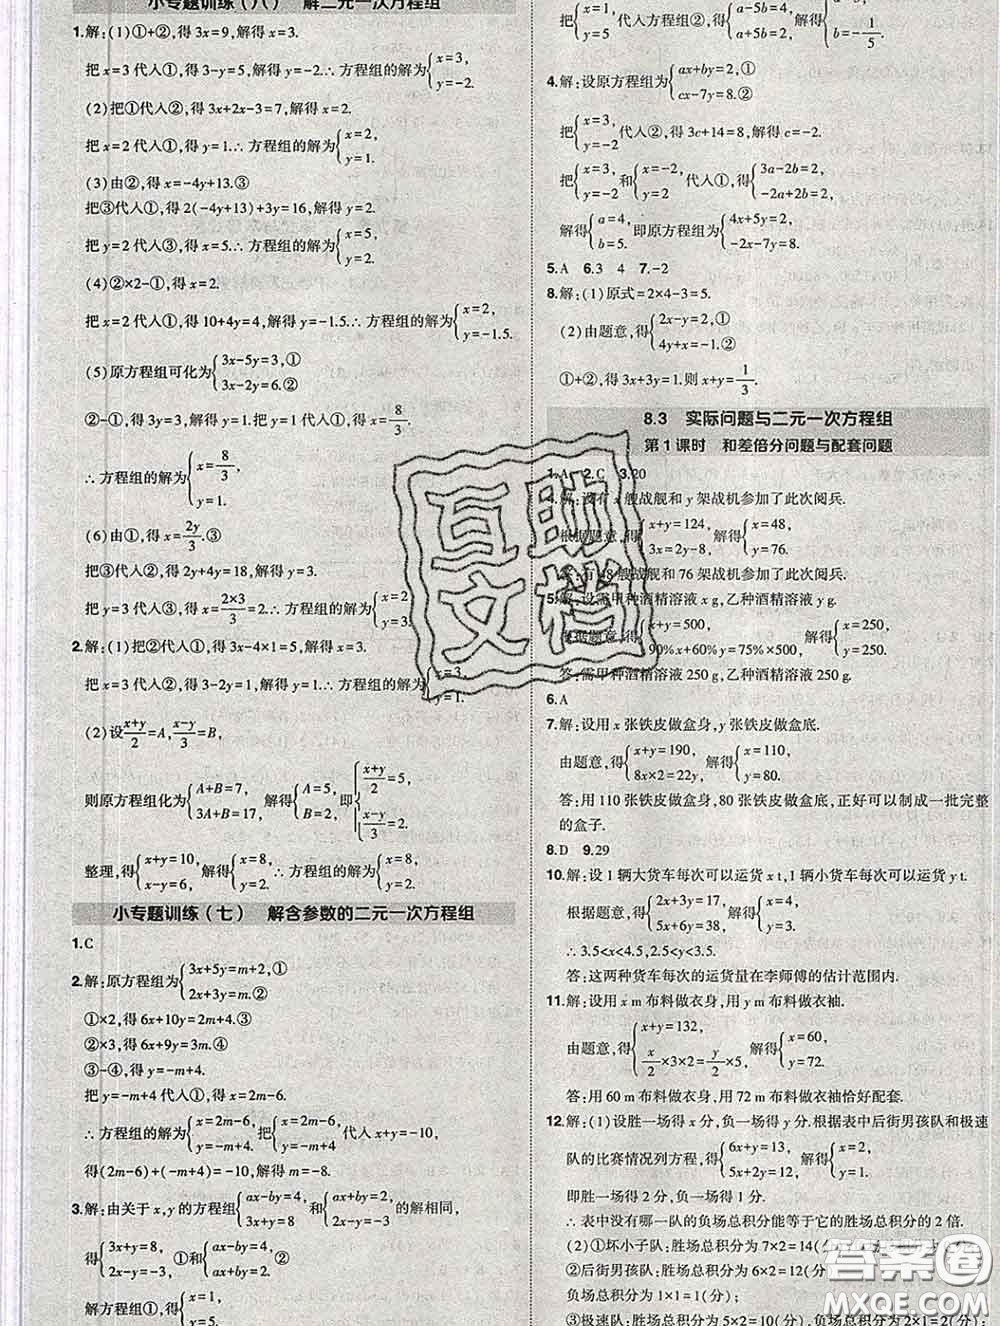 小专题训练(六) 解二元一次方程组
1.解:(1)①+②,得 3x=9,解得 x=3.
把 x=3 代入①,得 3-y=5,解得 y=-2.∴ 方程组的解为{x=3, y=-2.
(2)把①代入②,得 3x+2x-3=7,解得 x=2.
把 x=2 代入①,得 y=1.∴ 方程组的解为{x=2, y=1.
(3)由②,得 x=-4y+13.③
把③代入①,得 2(-4y+13)+3y=16,解得 y=2.
把 y=2 代入③,得 x=5.∴ 方程组的解为{x=5, y=2.
(4)②×2-①,得 x=2.
把 x=2 代入①,得 10+4y=4,解得 y=-1.5.∴ 方程组的解为{x=2, y=-1.5.
(5)原方程组可化为{3x-5y=3,① 3x-2y=6.②
②-①,得 3y=3,解得 y=1.把 y=1 代入①,得 x=8/3.
∴ 方程组的解为{x=8/3, y=1.
(6)由①,得 x=2y/3.③
把③代入②,得 2y+4y=18,解得 y=3.
把 y=3 代入③,得 x=2×3/3=2.∴ 方程组的解为{x=2 y=3.
2.解:(1)把②代入①,得 3x-4×1=5,解得 x=3.
把 x=3 代入②,得 3-2y=1,解得 y=1.∴ 方程组的解为{x=3, y=1.
(2)设(x+y)/2=A,(x-y)/3=B,
则原方程组化为{A+B=7, 3A+B=17, 解得{A=5, B=2, 即{(x+y)/2=5, (x-y)/3=2.
整理,得{x+y=10, x-y=6, 解得{x=8, y=2.∴ 方程组的解为{x=8, y=2.
小专题训练(七) 解含参数的二元一次方程组
1.C
2.解:原方程组为{3x+5y=m+2,① 2x+3y=m.②
①×2,得 6x+10y=2m+4.③
②×3,得 6x+9y=3m.④
③-④,得 y=-m+4.
把 y=-m+4 代入①,得 x=2m-6.
∴ 方程组的解为{x=2m-6, y=-m+4.把{x=2m-6, y=-m+4 代入 x+y=-10,
得(2m-6)+(-m+4)=-10,解得 m=-8.
解:由关于 x,y 的方程组{ax-by=4, 3x+y=8, 和{ax+by=6, 2x-y=-3 的解相同,
得{3x+y=8, 2x-y=-3, ①和{ax-by=4, ax+by=6. ②
解方程组①,得{x=1, y=5.
把{x=1, y=5 代入方程组②,得{a-5b=4, a+5b=6, 解得{b=-1/5.
4.解:设原方程组为{ax+by=2,① cx-7y=8.②
把{x=3, y=-2 代入②,得 3c+14=8,解得 c=-2.
把{x=3, y=-2 和{x=-2, y=2 代入①,得{3a-2b=2, -2a+2b=2.
解得{a=4, b=5. 即原方程组为{4x+5y=2, -2x-7y=8.
5.A 6.3 4 7.-2
8.解:(1)原式=2×4-3=5.
(2)由题意,得{2x-y=2,① 4y+x=-1.②
①+②,得 3x+3y=1.则 x+y=1/3.
8.3 实际问题与二元一次方程组
第1课时 和差倍分问题与配套问题
1.A 2.C 3.20
4.解:设有 x 艘战舰和 y 架战机参加了此次阅兵.
根据题意,得{x+y=124, 3x=2y-8, 解得{x=48, y=76.
答:有 48 艘战舰和 76 架战机参加了此次阅兵.
5.解:设需甲种酒精溶液 x g,乙种酒精溶液 y g.
根据题意,得{x+y=500, 90%x+60%y=75%×500, 解得{x=250, y=250.
答:需甲种酒精溶液 250 g,乙种酒精溶液 250 g.
6.A
7.解:设用 x 张铁皮做盒身,y 张铁皮做盒底.
由题意,得{x+y=190, 8x×2=22y, 解得{x=110, y=80.
答:用 110 张铁皮做盒身,80 张铁皮做盒底,正好可以制成一批完整
的盒子.
8.D 9.29
10.解:设 1 辆大货车每次可以运货 x t,1 辆小货车每次可以运货 y t.
根据题意,得{2x+3y=17, 5x+6y=38, 解得{x=4, y=3.
∴ 3.5<x<4.5,2.5<y<3.5.
答:这两种货车每次的运货量在李师傅的估计范围内.
11.解:设用 x m 布料做衣身,用 y m 布料做衣袖.
由题意,得{x+y=132, x/2×3×2=y/2×5, 解得{x=60, y=72.
答:用 60 m 布料做衣身,用 72 m 布料做衣袖恰好配套.
12.解:(1)设胜一场得 x 分,负一场得 y 分.根据表中后街男孩队和极速
队的比赛情况列方程,得{6x+y=13, 5x+2y=12, 解得{x=2, y=1.
即胜一场得 2 分,负一场得 1 分.
∴ 表中没有哪一队的负场总积分能等于它的胜场总积分的 2 倍.
(2)①坏小子队:胜场总积分为 7×2=14(分
②后街男孩队:胜场总积分为 6×2=12(分
负场总积分为 1×1=1(分);
③极速队:胜场总积分为 5×2=10(分),负场总积分为
互助
文档
答案圈
MXQE.COM